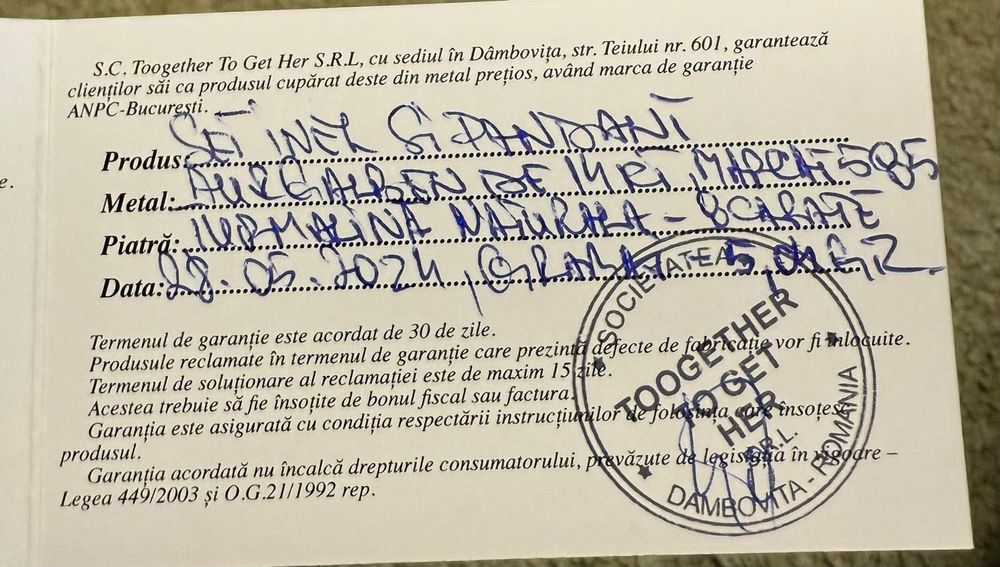 S.C. Toogether To Get Her S.R.L, cu sediul în Dâmbovița, str. Teiului nr. 601, garantează
clienților săi ca produsul cupărat deste din metal prețios, având marca de garanție
ANPC-București.
Produs: SET INEL SI PANDANT
Metal: AUR GALBEN DE 14 KT, MARCAT 585
Piatră: TURMALINA NATURALA - 8 CARATE
Data: 28.05.2024,
Termenul de garanție este acordat de 30 de zile.
Produsele reclamate în termenul de garanție care prezintă defecte de fabricație vor fi înlocuite.
Termenul de soluționare al reclamației este de maxim 15 zile.
Acestea trebuie să fie însoțite de bonul fiscal sau factura.
Garanția este asigurată cu condiția respectării instrucțiunilor de folosința care însoțesc
produsul.
Garanția acordată nu încalcă drepturile consumatorului, prevăzute de legislația în vigoare –
Legea 449/2003 și O.G.21/1992 rep.
SOCIETATEA
TOOGETHER
TO GET
HER
S.R.L.
DAMBOVITA - ROMANIA
e.